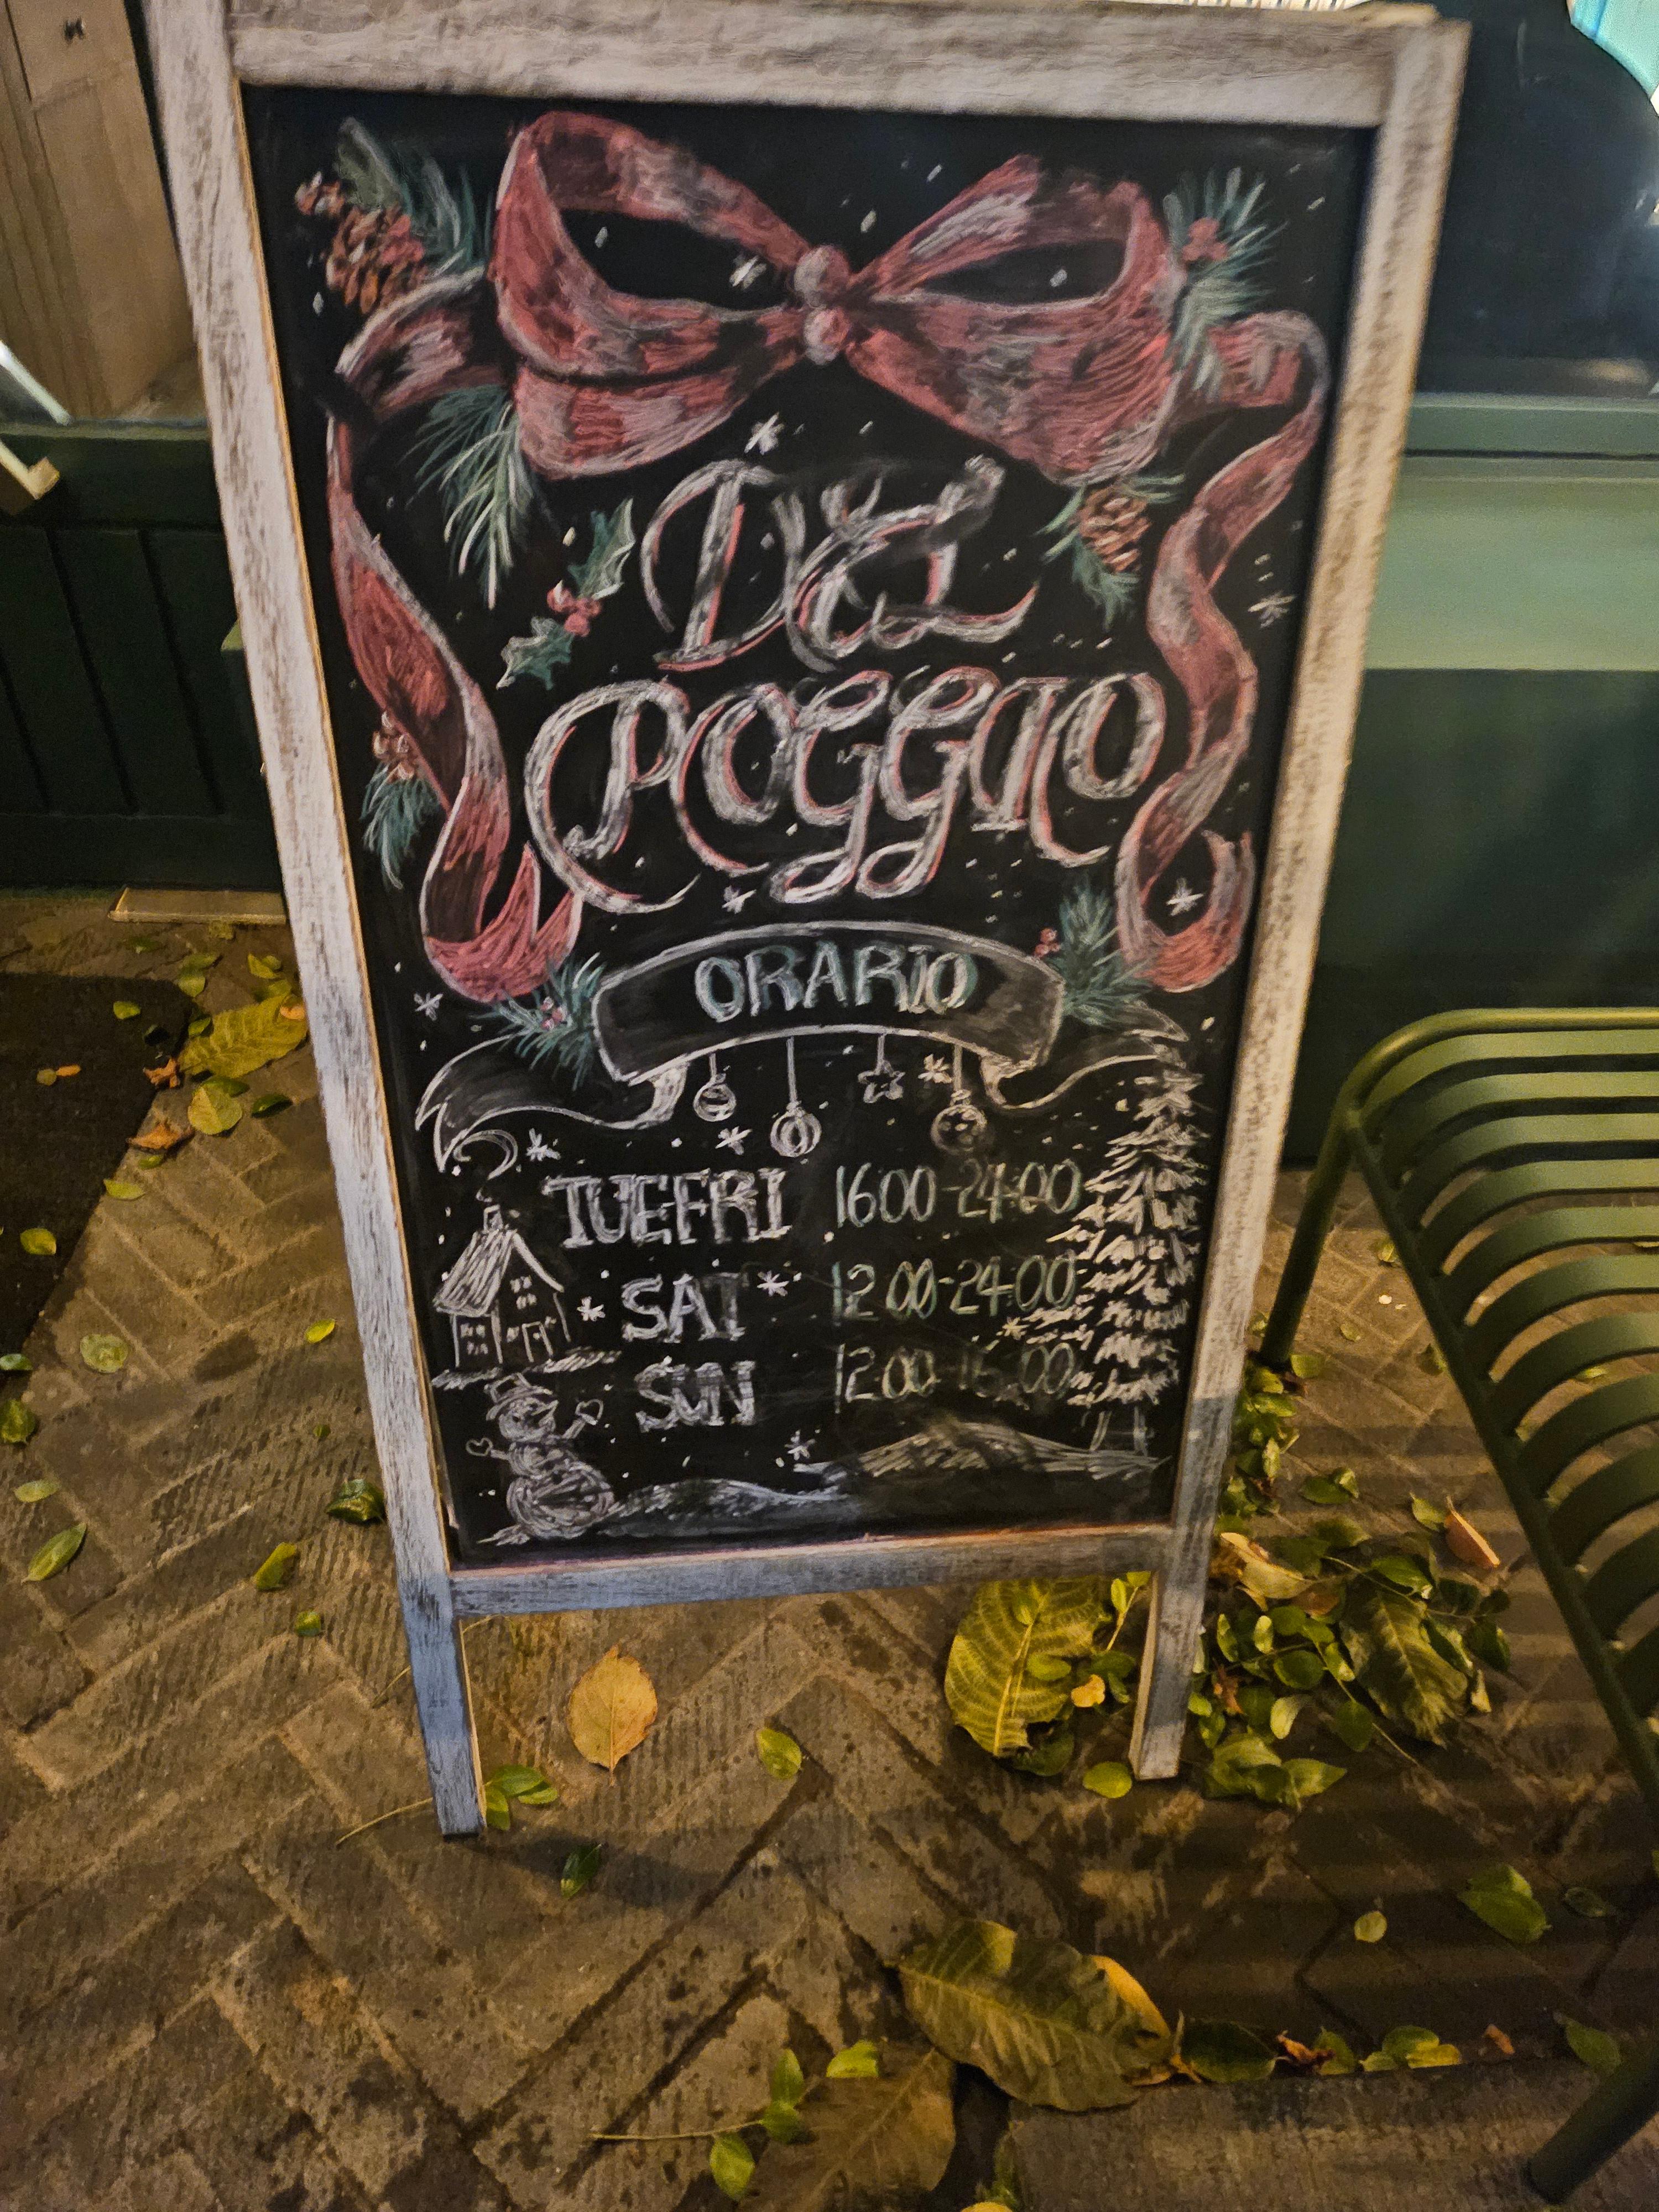 DEL
POGGIO
ORARIO
TUEFRI 1600-24:00
SAT 12 00-24:00
SUN 12 00-16:00